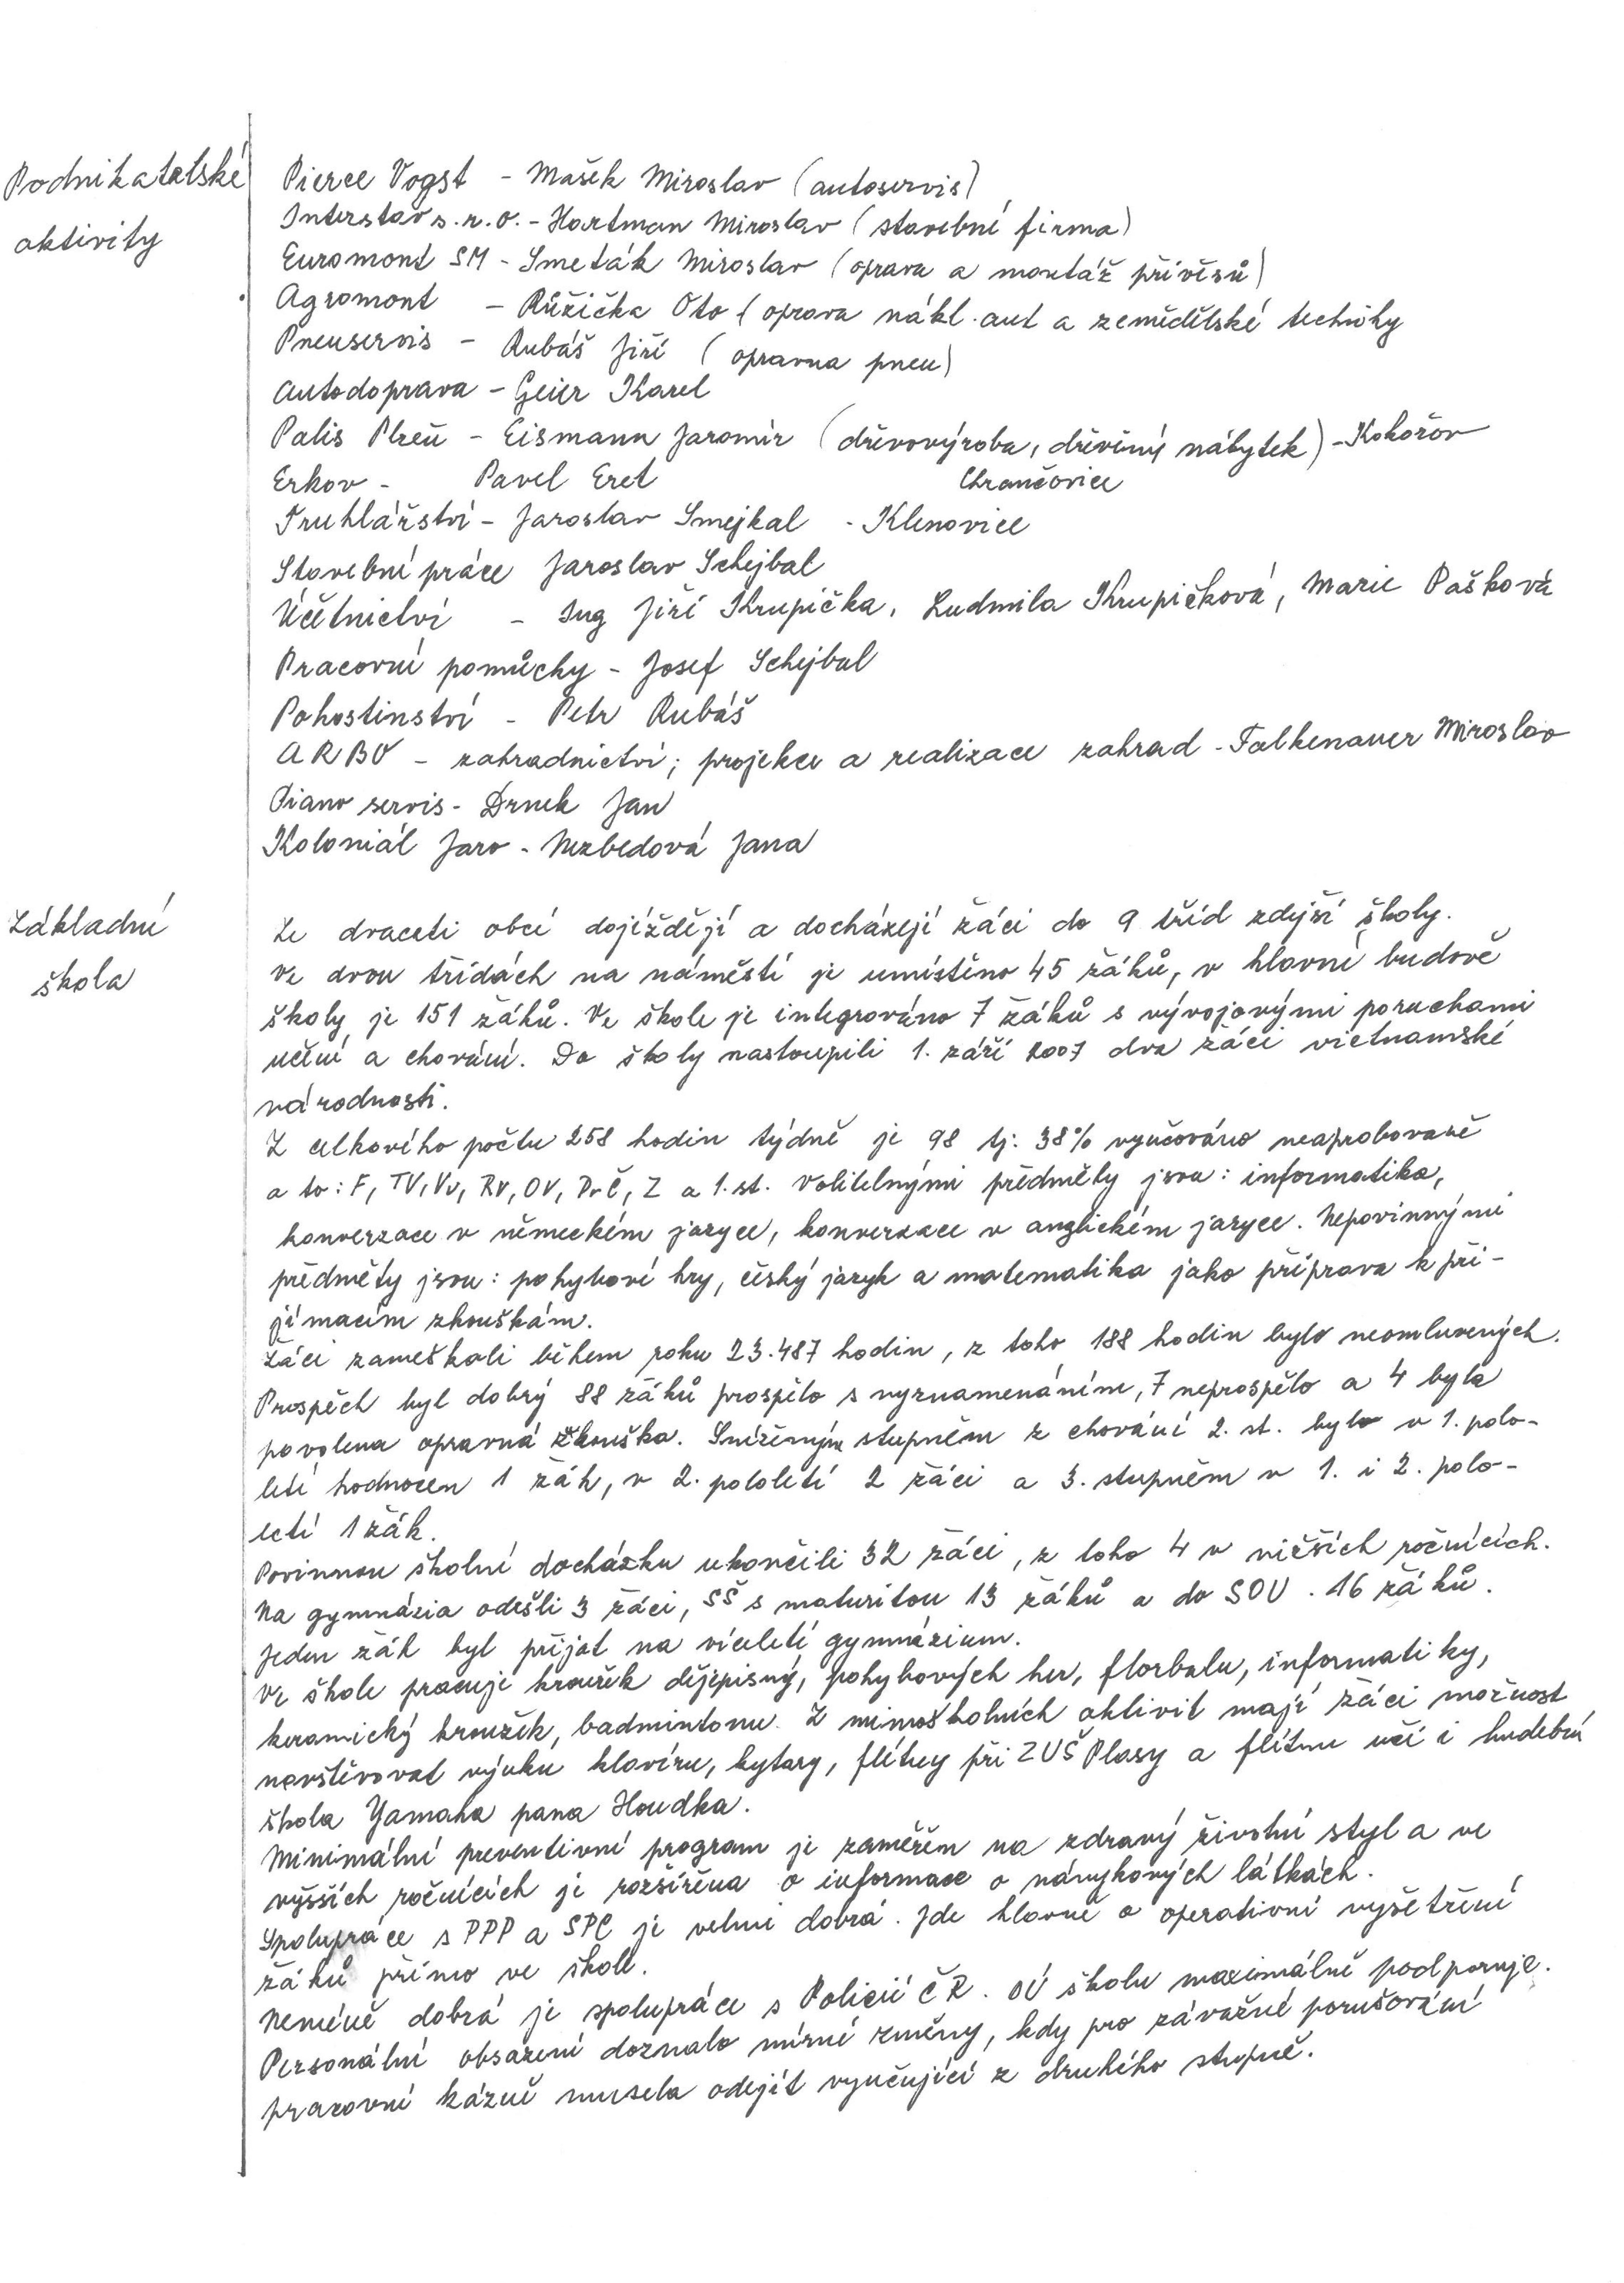 Podnikatelské
aktivity
Pierce Vogst - Mašek Miroslav (autoservis)
Interstav s.r.o. - Hartman Miroslav (stavební firma)
Euromont SM - Smeták Miroslav (oprava a montáž přívěsů)
Agromont - Růžička Oto (oprava nákl. aut a zemědělské techniky
Pneuservis - Rubáš Jiří (opravna pneu)
Autodoprava - Geier Karel
Palis Plzeň - Eismann Jaromír (dřevovýroba, dřevěný nábytek) - Kokořov
Erkov - Pavel Eret Chrančovice
Truhlářství - Jaroslav Smejkal - Klenovice
Stavební práce Jaroslav Schejbal
Účetnictví - Ing Jiří Krupička, Ludmila Krupičková, Marie Pašková
Pracovní pomůcky - Josef Schejbal
Pohostinství - Petr Rubáš
ARBO - zahradnictví; projekce a realizace zahrad - Falkenauer Miroslav
Piano servis - Drnek Jan
Koloniál Jaro - Nezbedová Jana
Základní
škola
Ze dvaceti obcí dojíždějí a docházejí žáci do 9 tříd zdejší školy.
Ve dvou třídách na náměstí je umístěno 45 žáků, v hlavní budově
školy je 151 žáků. Ve škole je integrováno 7 žáků s vývojovými poruchami
učení a chování. Do školy nastoupili 1. září 2007 dva žáci vietnamské
národnosti.
Z celkového počtu 258 hodin týdně je 98 tj. 38% vyučováno neaprobovaně
a to: F, TV, Vv, RV, OV, PrČ, Z a 1. st. Volitelnými předměty jsou: informatika,
konverzace v německém jazyce, konverzace v anglickém jazyce. Nepovinnými
předměty jsou: pohybové hry, český jazyk a matematika jako příprava k při-
jímacím zkouškám.
Žáci zameškali během roku 23.487 hodin, z toho 188 hodin bylo neomluvených.
Prospěch byl dobrý 88 žáků prospělo s vyznamenáním, 7 neprospělo a 4 byla
povolena opravná zkouška. Sníženým stupněm z chování 2. st. bylo v 1. polo-
letí hodnocen 1 žák, v 2. pololetí 2 žáci a 3. stupněm v 1. i 2. polo-
letí 1 žák.
Povinnou školní docházku ukončili 32 žáci, z toho 4 v nižších ročnících.
Na gymnázia odešli 3 žáci, SŠ s maturitou 13 žáků a do SOU . 16 žáků.
Jeden žák byl přijat na víceletí gymnázium.
Ve škole pracuje kroužek dějepisný, pohybových her, florbalu, informatiky,
keramický kroužek, badmintonu. Z mimoškolních aktivit mají žáci možnost
navštěvovat výuku klavíru, kytary, flétny při ZUŠ Plasy a flétnu učí i hudební
škola Yamaha pana Houdka.
Minimální preventivní program je zaměřen na zdravý životní styl a ve
vyšších ročnících je rozšířena o informace o návykových látkách.
Spolupráce s PPP a SPC je velmi dobrá. Jde hlavně o operativní vyšetření
žáků přímo ve škole.
Neméně dobrá je spolupráce s Policií ČR. OÚ školu maximálně podporuje.
Personální obsazení doznalo mírné změny, kdy pro závažné porušování
pracovní kázně musela odejít vyučující z druhého stupně.